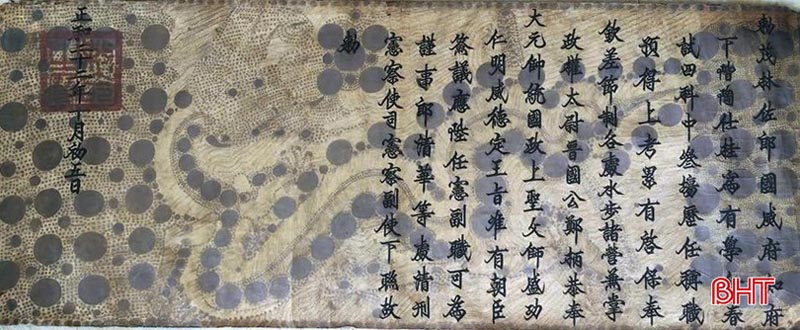 敕茂林佐郎國威府知府
下階阮仕桂爲有學春
試四科中叄塲歷任稱職
預得上考累有啓保奉
欽差節制各處水步諸營兼掌
政權太尉晋國公鄭柄恭奉
大元帥統國政上聖父師盛功
仁明威德定王旨准有朝臣
僉議應陞任憲副職可爲
謹事郎清華等處清刑
憲察使司憲察副使下聯故
敕
正和二十二年十月初日
BHT